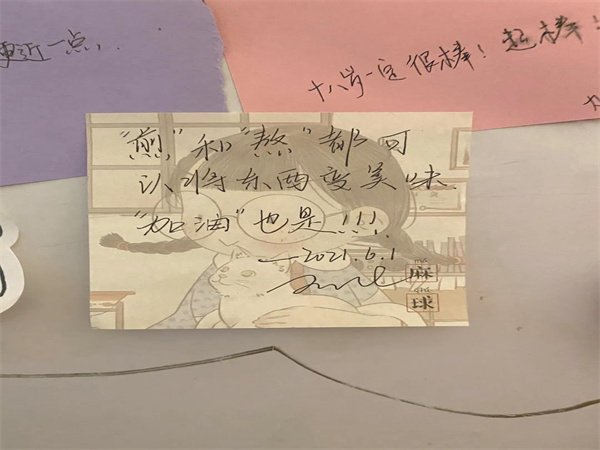 近一点，
十八岁一定很棒！超棒！
"煎"和"熬"都可
以将东西变美味
"加油"也是!!!
—2021.6.1
麻
球